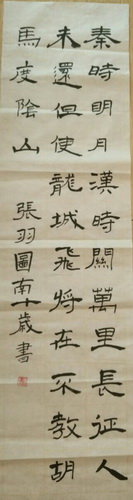 秦時明月漢時關萬里長征人
未還但使龍城飛將在不教胡
馬度陰山
張羽圖南十歲書